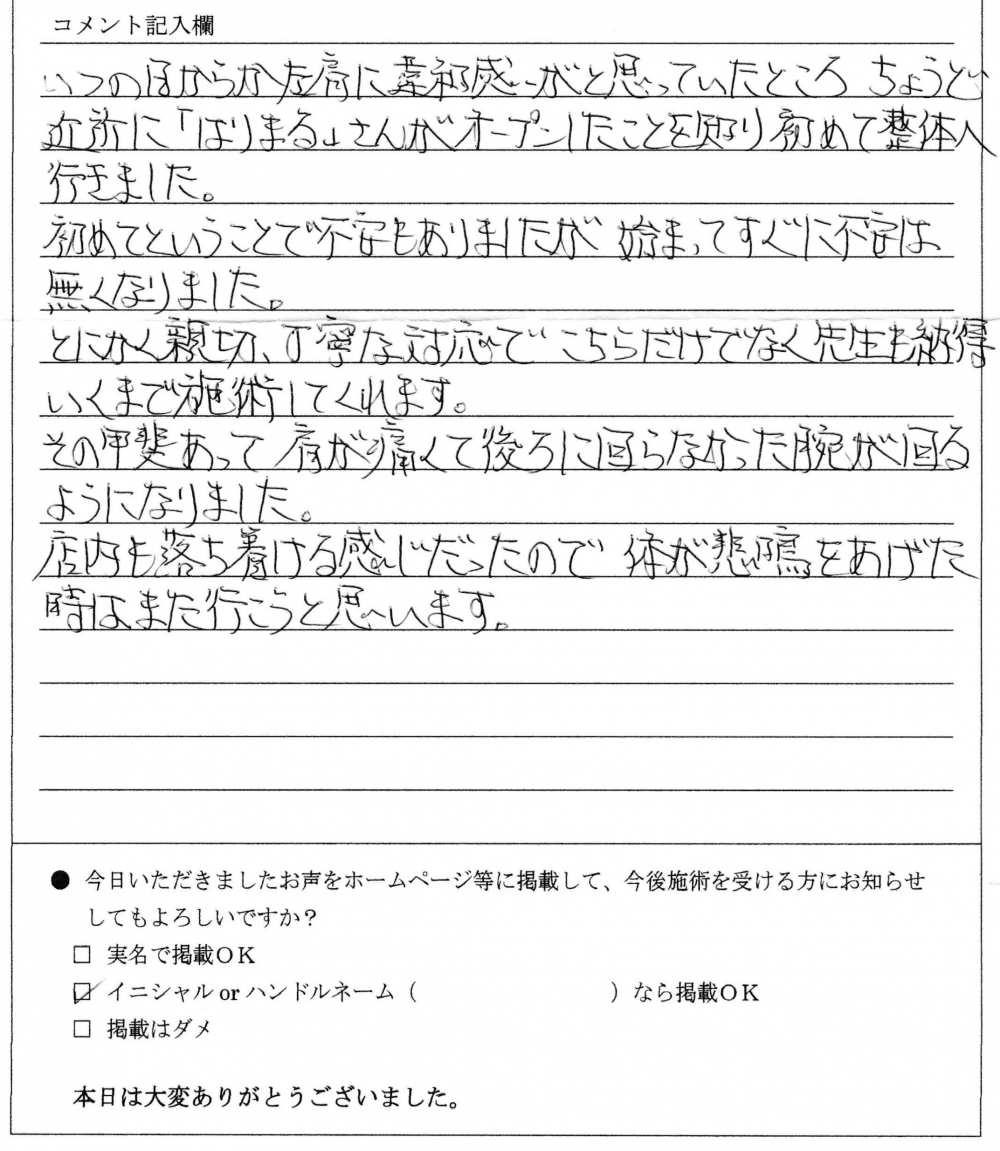 コメント記入欄
いつの日からか左肩に違和感がと思っていたところ ちょうど
近所に「はりまる」さんがオープンしたことを知り初めて整体へ
行きました。
初めてということで不安もありましたが 始まってすぐに不安は
無くなりました。
とにかく親切、丁寧な対応で こちらだけでなく先生も納得
いくまで施術してくれます。
その甲斐あって 肩が痛くて後ろに回らなかった腕が回る
ようになりました。
店内も落ち着ける感じだったので 体が悲鳴をあげた
時はまた行こうと思います。
● 今日いただきましたお声をホームページ等に掲載して、今後施術を受ける方にお知らせ
してもよろしいですか？
□ 実名で掲載OK
☑ イニシャル or ハンドルネーム（ ）なら掲載OK
□ 掲載はダメ
本日は大変ありがとうございました。